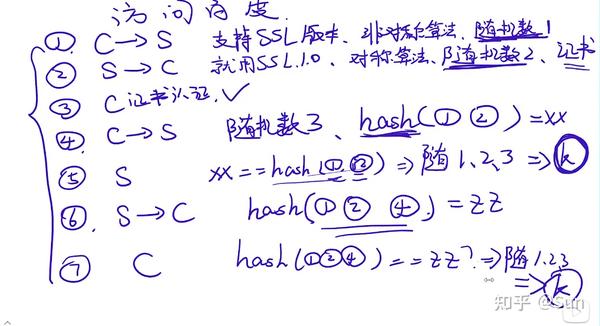 访问百度
① C→S 支持SSL版本、非对称算法、随机数1
② S→C 就用SSL1.0、对称算法、随机数2、证书
③ C证书认证.✓
④ C→S 随机数3、hash(①②)=xx
⑤ S xx==hash(①②)⇒随1、2、3⇒k
⑥. S→C hash(①②④).=zz
⑦ C hash(①②④)==zz?⇒随1.2.3
⇒k
知乎 @Sun